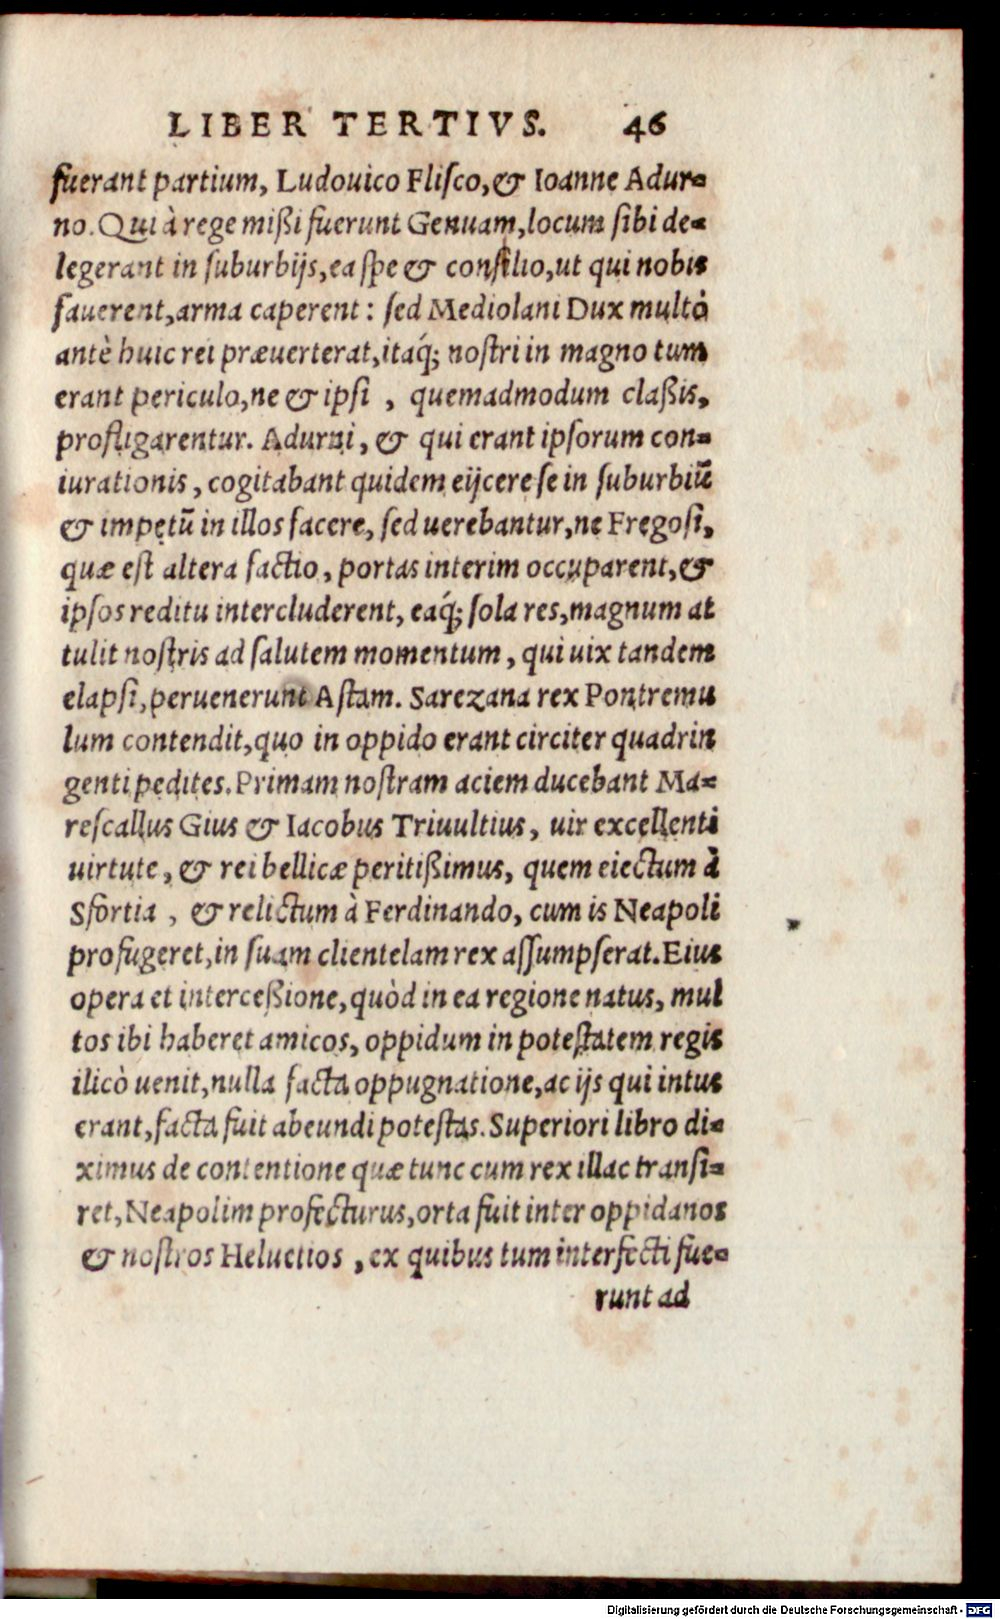 LIBER TERTIVS. 46
fuerant partium, Ludouico Flisco, & Ioanne Adur-
no. Qui à rege mißi fuerunt Genuam, locum sibi de-
legerant in suburbijs, ea spe & consilio, ut qui nobis
fauerent, arma caperent: sed Mediolani Dux multò
antè huic rei præuerterat, itaq́; nostri in magno tum
erant periculo, ne & ipsi , quemadmodum claßis,
profligarentur. Adurni, & qui erant ipsorum con-
iurationis, cogitabant quidem eijcere se in suburbiũ
& impetũ in illos facere, sed uerebantur, ne Fregosi,
quæ est altera factio, portas interim occuparent, &
ipsos reditu intercluderent, eaq́; sola res, magnum at
tulit nostris ad salutem momentum, qui uix tandem
elapsi, peruenerunt Astam. Sarezana rex Pontremu
lum contendit, quo in oppido erant circiter quadrin
genti pedites. Primam nostram aciem ducebant Ma-
rescallus Gius & Iacobus Triuultius, uir excellenti
uirtute, & rei bellicæ peritißimus, quem eiectum à
Sfortia , & relictum à Ferdinando, cum is Neapoli
profugeret, in suam clientelam rex assumpserat. Eius
opera et interceßione, quòd in ea regione natus, mul
tos ibi haberet amicos, oppidum in potestatem regis
ilicò uenit, nulla facta oppugnatione, ac ijs qui intus
erant, facta fuit abeundi potestas. Superiori libro di-
ximus de contentione quæ tunc cum rex illac transi-
ret, Neapolim profecturus, orta fuit inter oppidanos
& nostros Heluetios , ex quibus tum interfecti fue-
runt ad
Digitalisierung gefördert durch die Deutsche Forschungsgemeinschaft - DFG